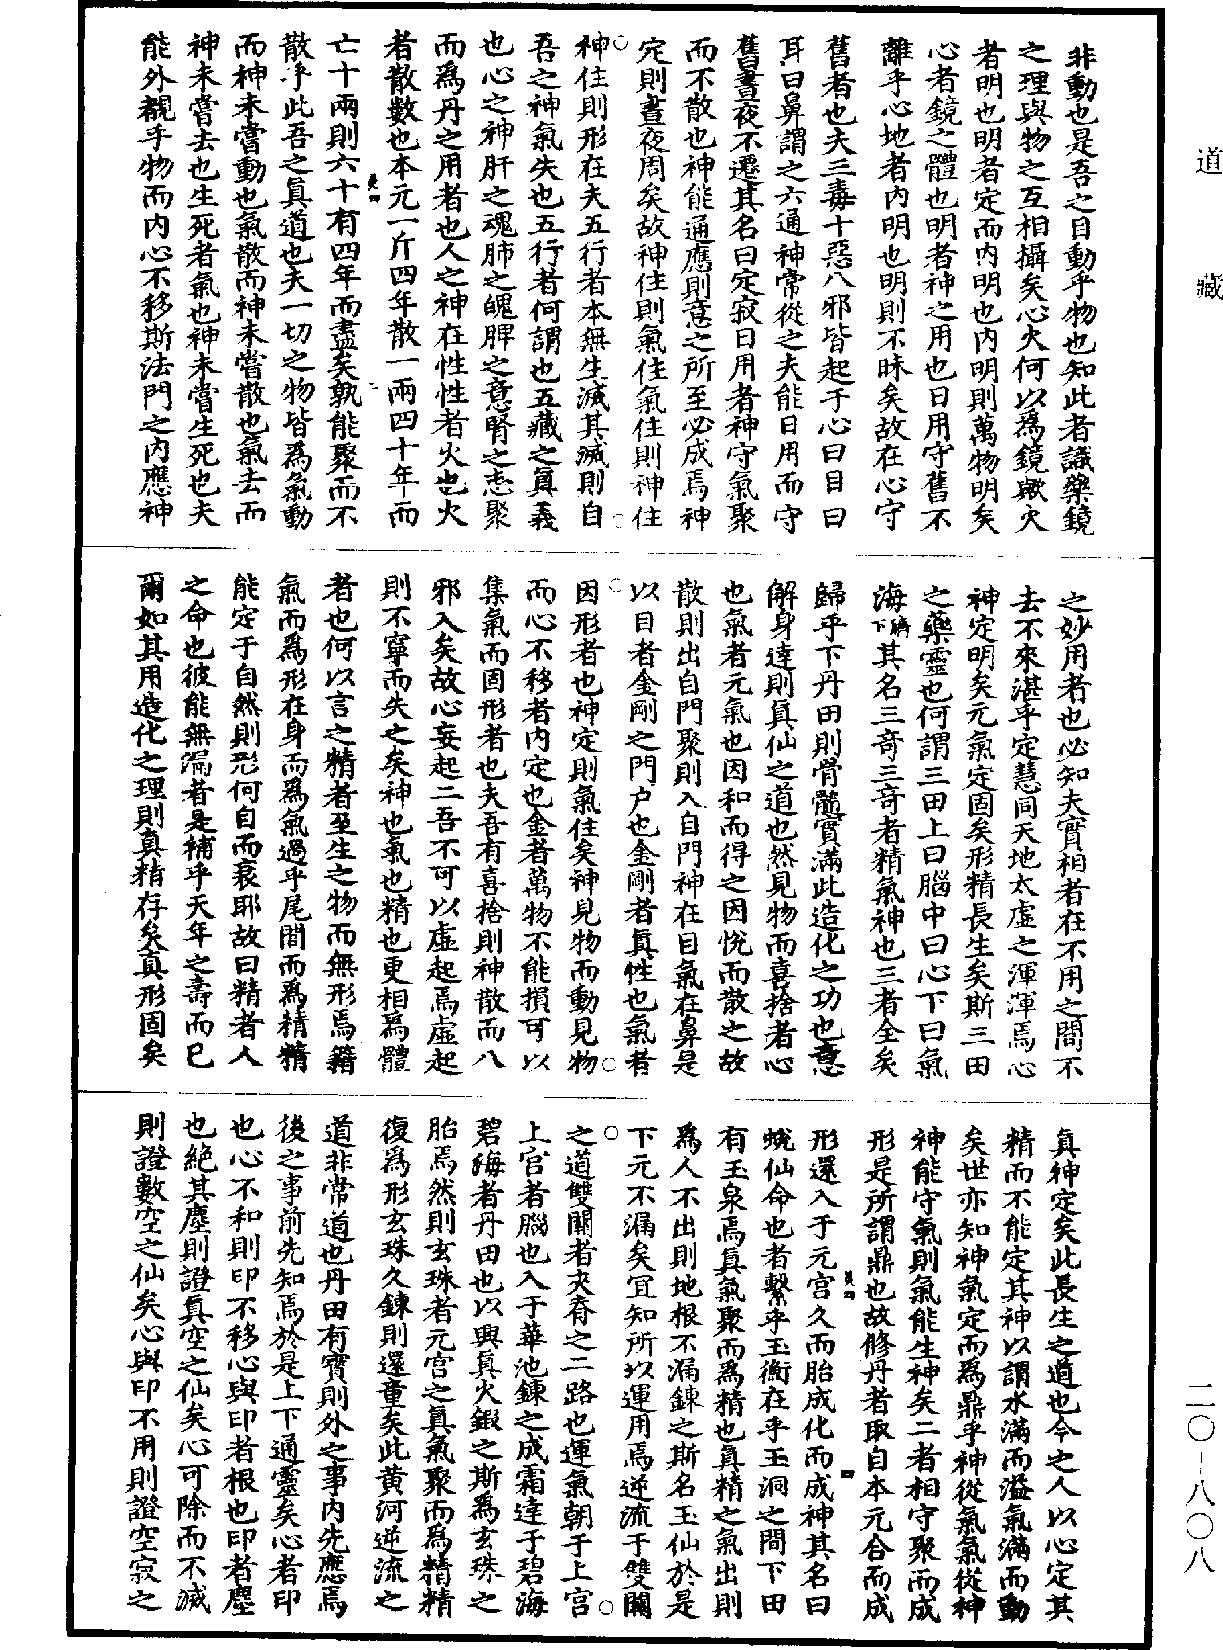 道藏
非動也是吾之目動乎物也知此者識藥鏡
之理與物之互相攝矣心火何以爲鏡歟火
者明也明者定而內明也內明則萬物明矣
心者鏡之體也明者神之用也日用守舊不
離乎心地者內明也明則不昧矣故在心守
舊者也夫三毒十惡八邪皆起于心曰目曰
耳曰鼻謂之六通神常從之夫能日用而守
舊晝夜不遷其名曰定寂日用者神守氣聚
而不散也神能通應則意之所至必成焉神
定則晝夜周矣故神住則氣住氣住則神住
神住則形在夫五行者本無生滅其滅則自
吾之神氣失也五行者何謂也五藏之眞義
也心之神肝之魂肺之魄脾之意腎之志聚
而爲丹之用者也人之神在性性者火也火
者散數也本元一斤四年散一兩四十年而
亡十兩則六十有四年而盡矣孰能聚而不
散乎此吾之眞道也夫一切之物皆爲氣動
而神未嘗動也氣散而神未嘗散也氣去而
神未嘗去也生死者氣也神未嘗生死也夫
能外覩乎物而內心不移斯法門之內應神
之妙用者也必知夫實相者在不用之間不
去不來湛乎定慧同天地太虛之渾渾焉心
神定明矣元氣定固矣形精長生矣斯三田
之藥靈也何謂三田上曰腦中曰心下曰氣
海臍下其名三奇三奇者精氣神也三者全矣
歸乎下丹田則骨髓實滿此造化之功也意
解身達則眞仙之道也然見物而喜捨者心
也氣者元氣也因和而得之因悅而散之故
散則出自門聚則入自門神在目氣在鼻是
以目者金剛之門户也金剛者眞性也氣者
因形者也神定則氣住矣神見物而動見物
而心不移者內定也金者萬物不能損可以
集氣而固形者也夫吾有喜捨則神散而八
邪入矣故心妄起二吾不可以虛起焉虛起
則不寧而失之矣神也氣也精也更相爲體
者也何以言之精者至生之物而無形焉籍
氣而爲形在身而爲氣過乎尾閭而爲精精
能定于自然則形何自而衰耶故曰精者人
之命也彼能無漏者是補乎天年之壽而已
爾如其用造化之理則眞精存矣眞形固矣
眞神定矣此長生之道也今之人以心定其
精而不能定其神以謂水滿而溢氣滿而動
矣世亦知神氣定而爲鼎乎神從氣氣從神
神能守氣則氣能生神矣二者相守聚而成
形是所謂鼎也故修丹者取自本元合而成
形還入于元宮久而胎成化而成神其名曰
蛻仙命也者繫乎玉衡在乎玉洞之間下田
有玉泉焉眞氣聚而爲精也眞精之氣出則
爲人不出則地根不漏鍊之斯名玉仙於是
下元不漏矣冝知所以運用焉逆流于雙關
之道雙關者夾脊之二路也運氣朝于上宮
上宮者腦也入于華池鍊之成霜達于碧海
碧海者丹田也以與眞火鍛之斯爲玄珠之
胎焉然則玄珠者元宮之眞氣聚而爲精精
復爲形玄珠久鍊則還童矣此黃河逆流之
道非常道也丹田有寶則外之事內先應焉
後之事前先知焉於是上下通靈矣心者印
也心不和則印不移心與印者根也印者塵
也絕其塵則證眞空之仙矣心可除而不滅
則證數空之仙矣心與印不用則證空寂之
二〇-八〇八